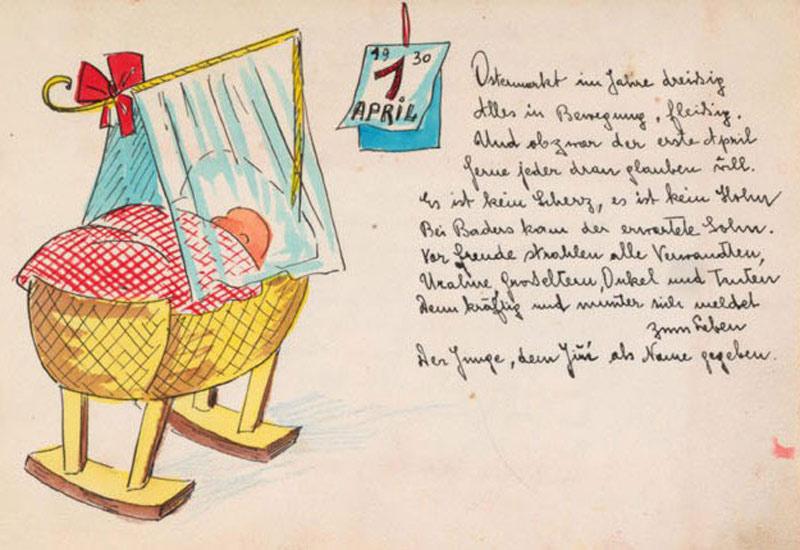 19 30
1
APRIL
Ostermarkt im Jahre dreißig
Alles in Bewegung, fleißig.
Und obzwar der erste April
Ferne jeder dran glauben will.
Es ist kein Scherz, es ist kein Hohn
Bei Baders kam der erwartete Sohn.
Vor Freude strahlen alle Verwandten,
Urahne, Großeltern, Onkel und Tanten
Denn kräftig und munter sich meldet
zum Leben
Der Junge, dem Jiří als Name gegeben.